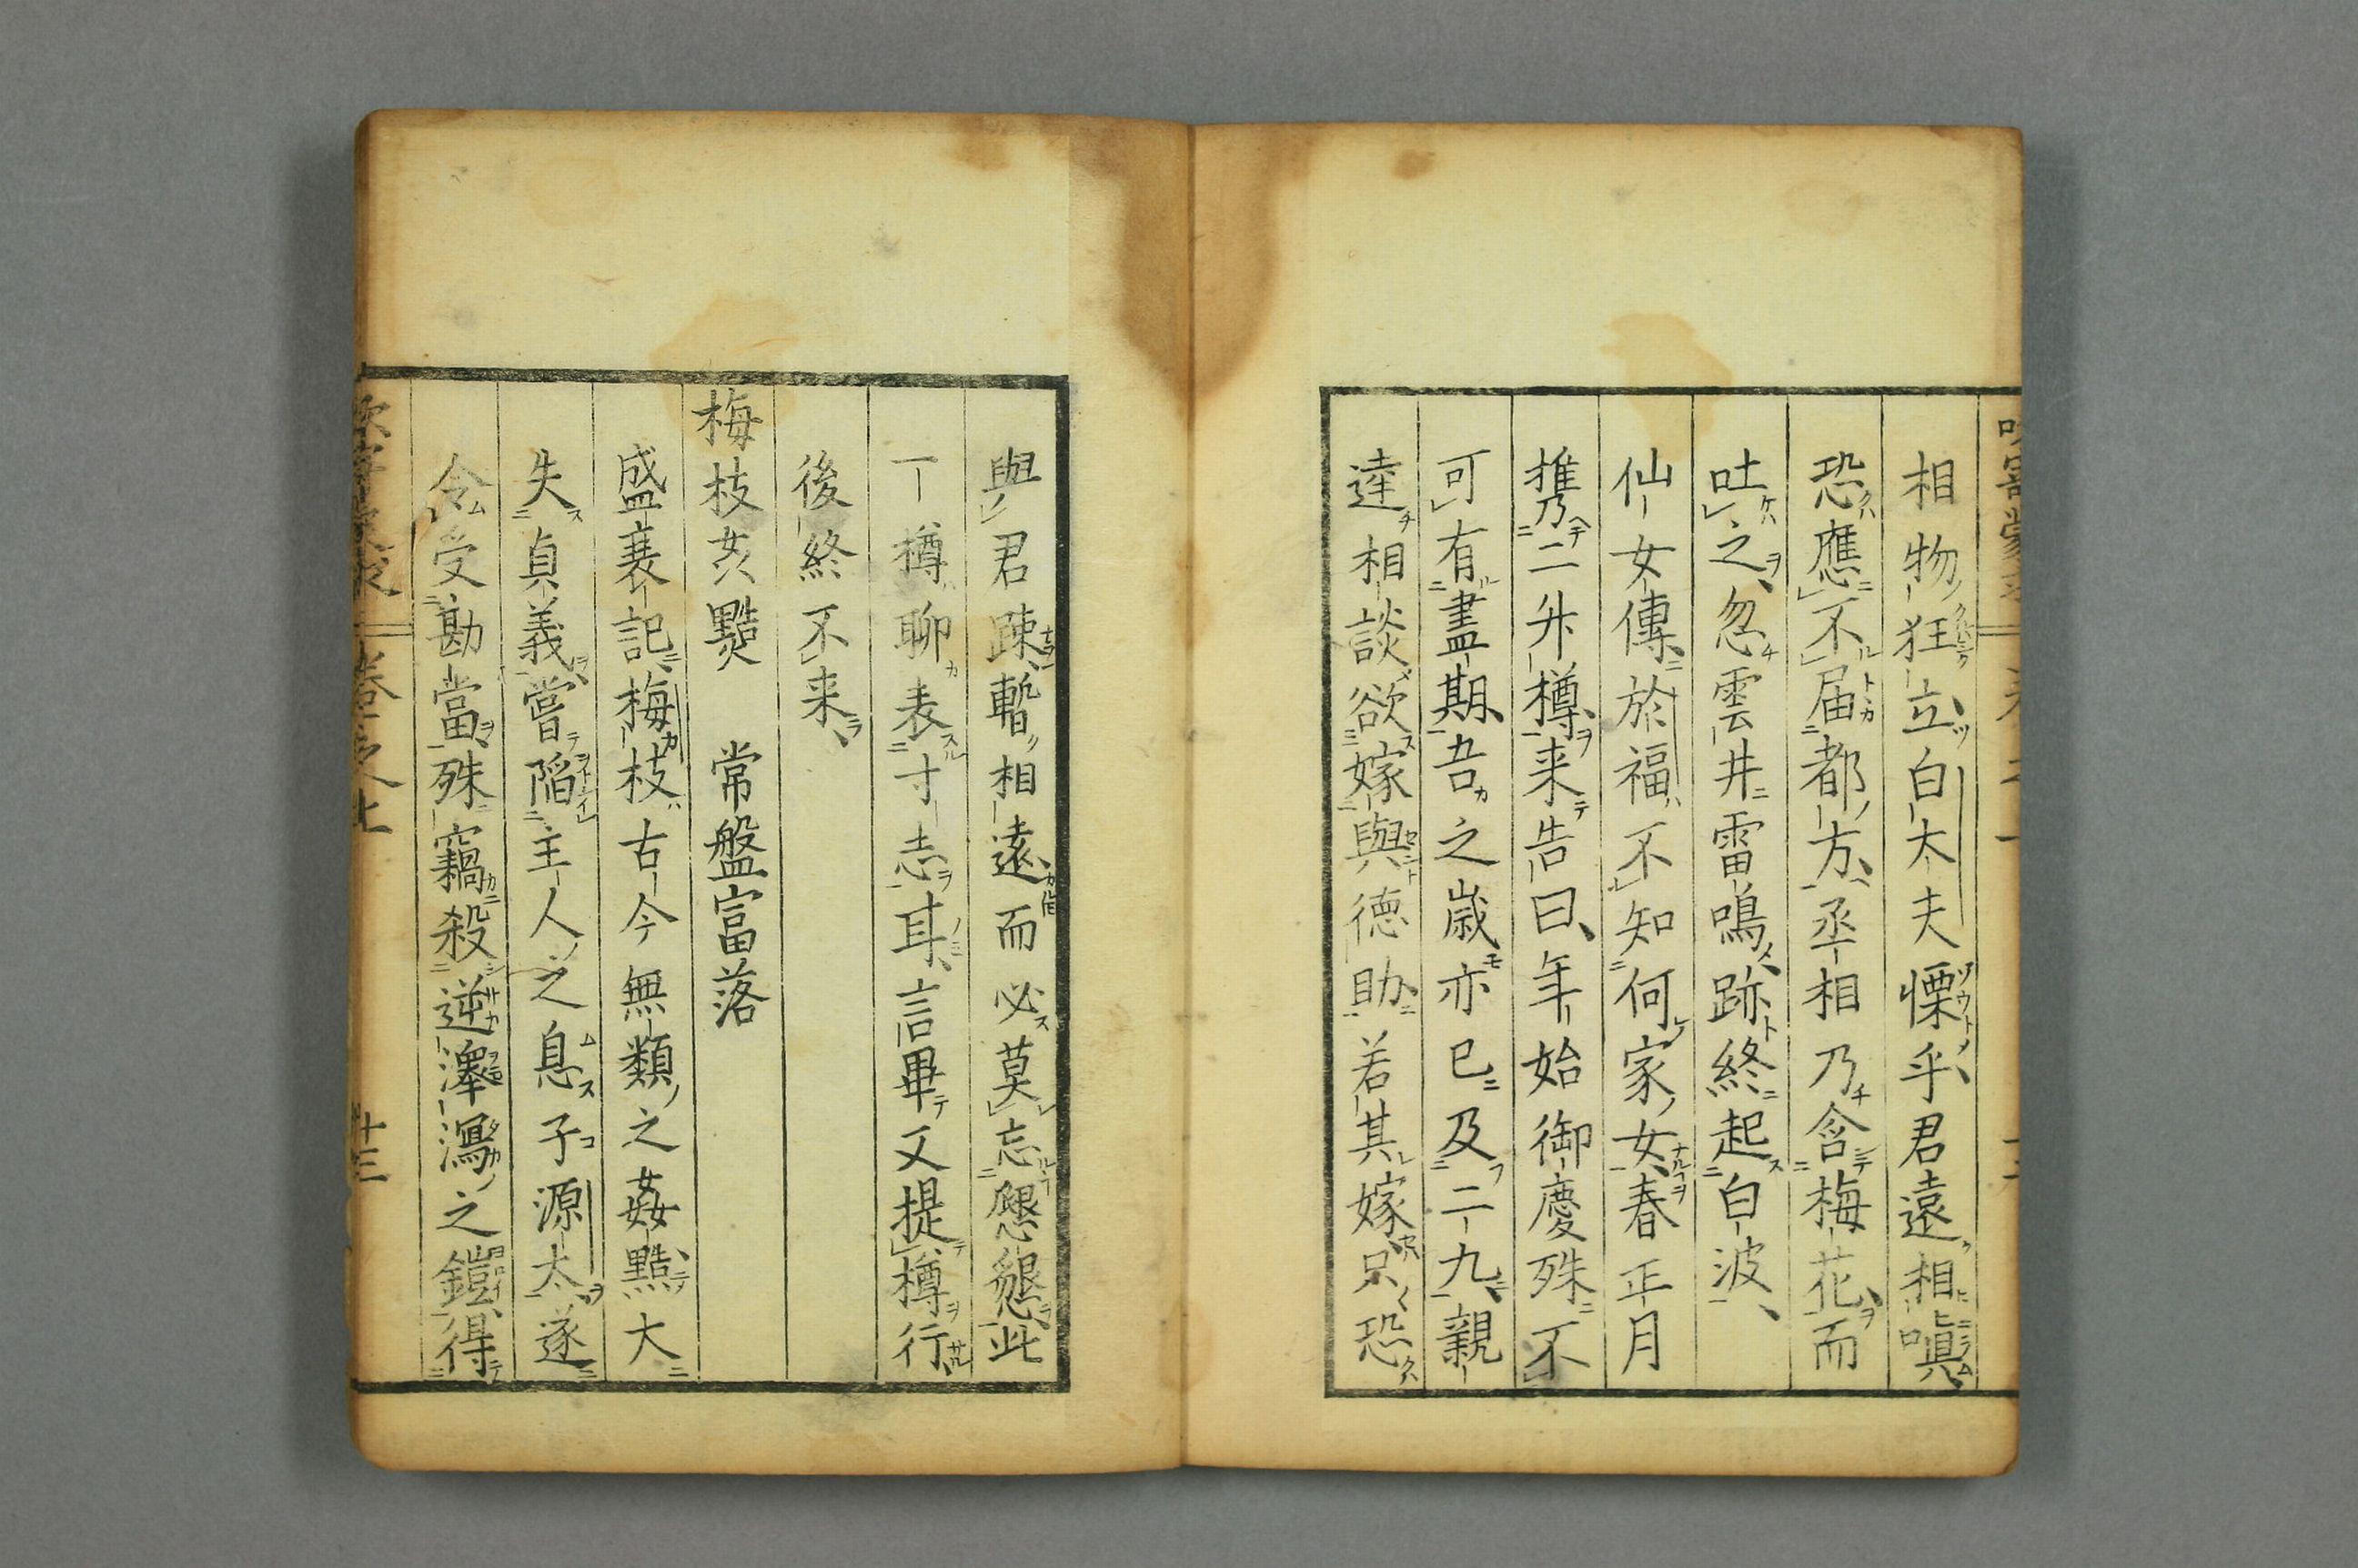 相物狂立白太夫慄乎君遠相嗔
恐應不届都方丞相乃含梅花而
吐之忽雲井雷鳴跡終起白波
仙女傳於福不知何家女春正月
携二升樽来告曰年始御慶殊不
可有盡期吾之歳亦已及二九親
達相談欲嫁與徳助若其嫁只恐
與君疎暫相遠而必莫忘懇懇此
一樽聊表寸志耳言畢又提樽行
後終不来
梅枝亥㸃 常盤富落
盛衰記梅枝古今無類之姦㸃大
失貞義嘗陥主人之息子源太遂
令受勘當殊竊殺逆澤瀉之鎧得
卷之上 廿三